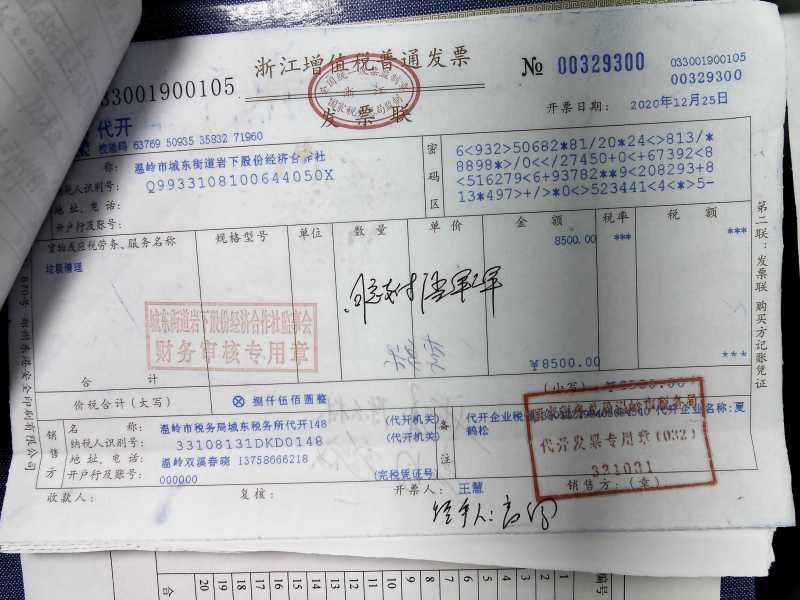 浙江增值税普通发票
发票联
全国统一发票监制章
浙江
国家税务总局监制
№ 00329300
033001900105
00329300
33001900105
代开
校验码 63769 50935 35832 71960
开票日期: 2020年12月25日
称: 温岭市城东街道岩下股份经济合作社
纳税人识别号: Q9933108100644050X
地址、电话:
开户行及账号:
密码区
6<932>50682*81/20*24<>813/*
8898*>/0<</27450+0+<67392<8
<516279<6+93782**9<208293+8
13*497>+/>*0<>523441<4<*>5-
货物或应税劳务、服务名称 规格型号 单位 数量 单价 金额 税率 税额
垃圾清理 8500.00 *** ***
城东街道岩下股份经济合作社监事会
财务审核专用章
合计 ¥8500.00 ***
价税合计(大写) ⊗ 捌仟伍佰圆整 (小写)
销售方
名称: 温岭市税务局城东税务所代开148 (代开机关)
纳税人识别号: 33108131DKD0148 (代开机关)
地址、电话: 温岭双溪春晓 13758666218
开户行及账号: 000000 (完税凭证号)
备注
代开企业税 代开企业名称:夏
鹤松
代开发票专用章(032)
331031
收款人: 复核: 开票人: 王慧 销售方:(章)
经手人:
第二联:发票联 购买方记账凭证
20 19 18 17 16 15 14 13 12 11 10 9 8 7 6 5 4 3 2 1
编号
合